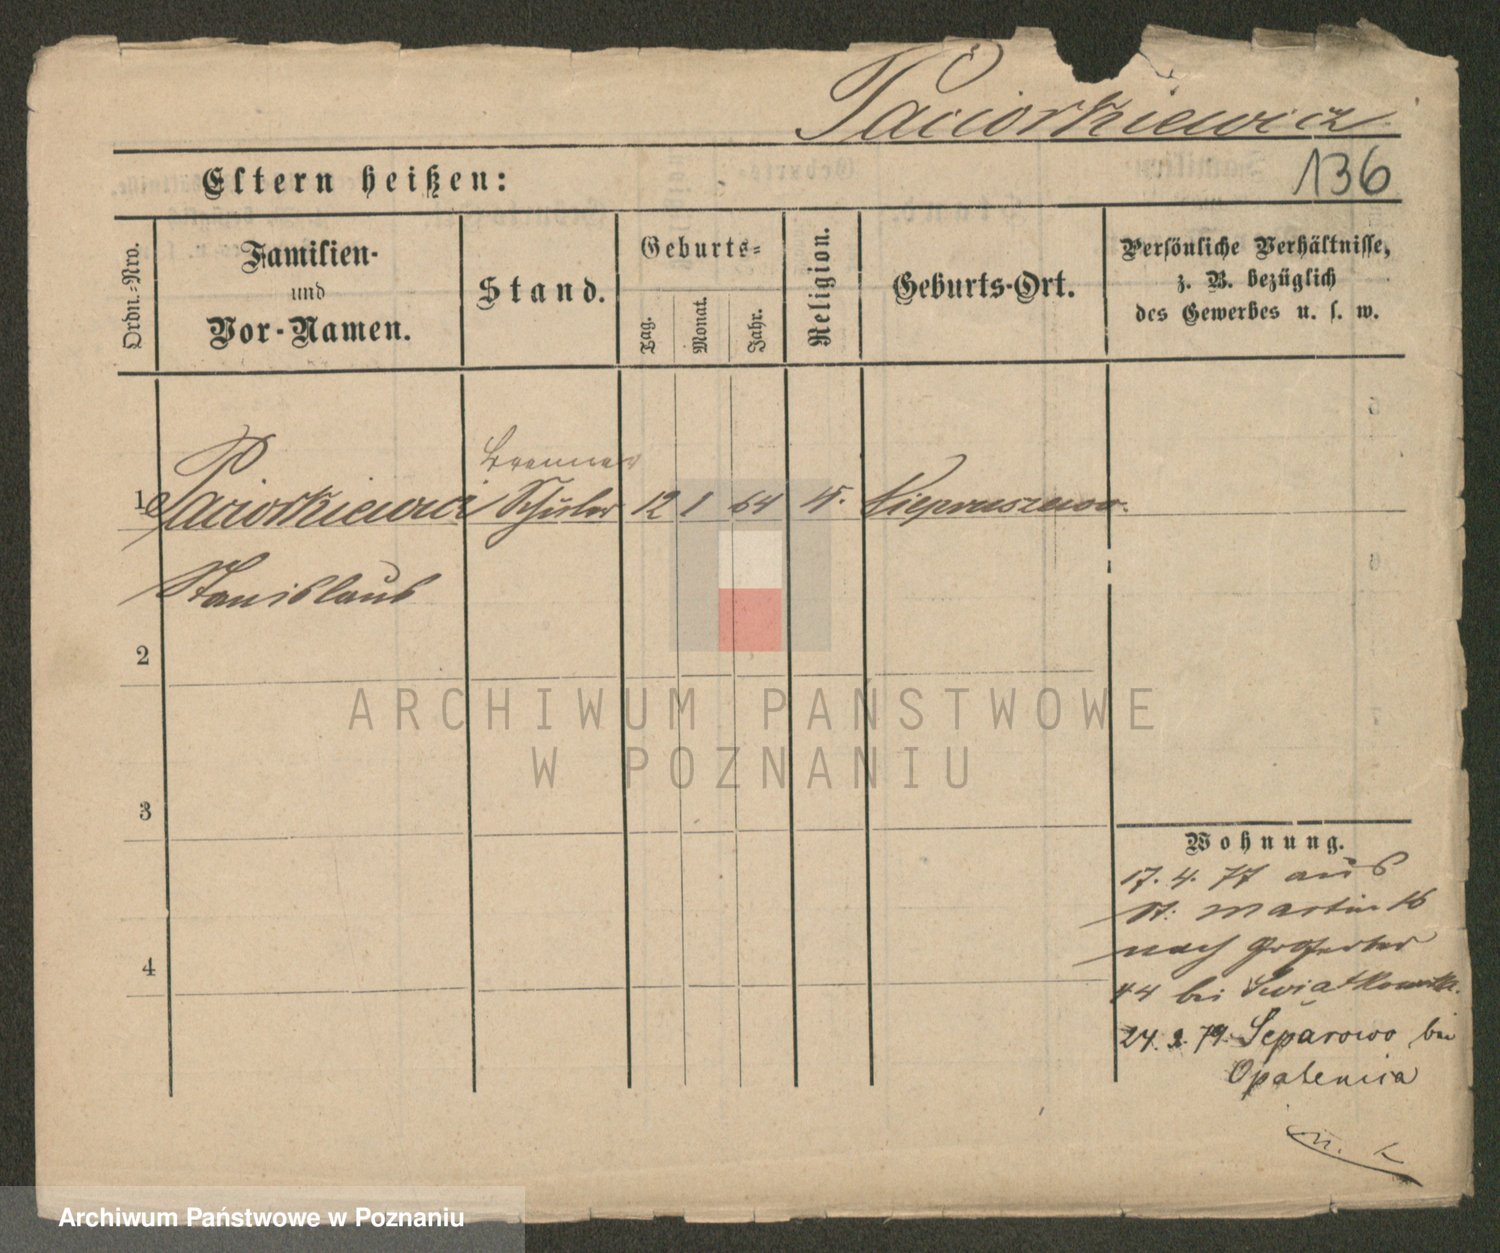 Paciorkiewicz
136
Eltern heißen:
Ordn.-Nro.
Familien-
und
Vor-Namen.
Stand.
Geburts-
Tag.
Monat.
Jahr.
Religion.
Geburts-Ort.
Persönliche Verhältnisse,
z. B. bezüglich
des Gewerbes u. s. w.
Brenner
1 Paciorkiewicz Schüler 12 1 64 Kiepruszewo.
Stanislaus
2
3
4
Wohnung.
17. 4. 77 aus
St. Martin 16
nach Gr Gerber
44 bei Swiatkowski.
24. 2. 79. Separowo bei
Opalenica
ARCHIWUM PAŃSTWOWE
W POZNANIU
Archiwum Państwowe w Poznaniu